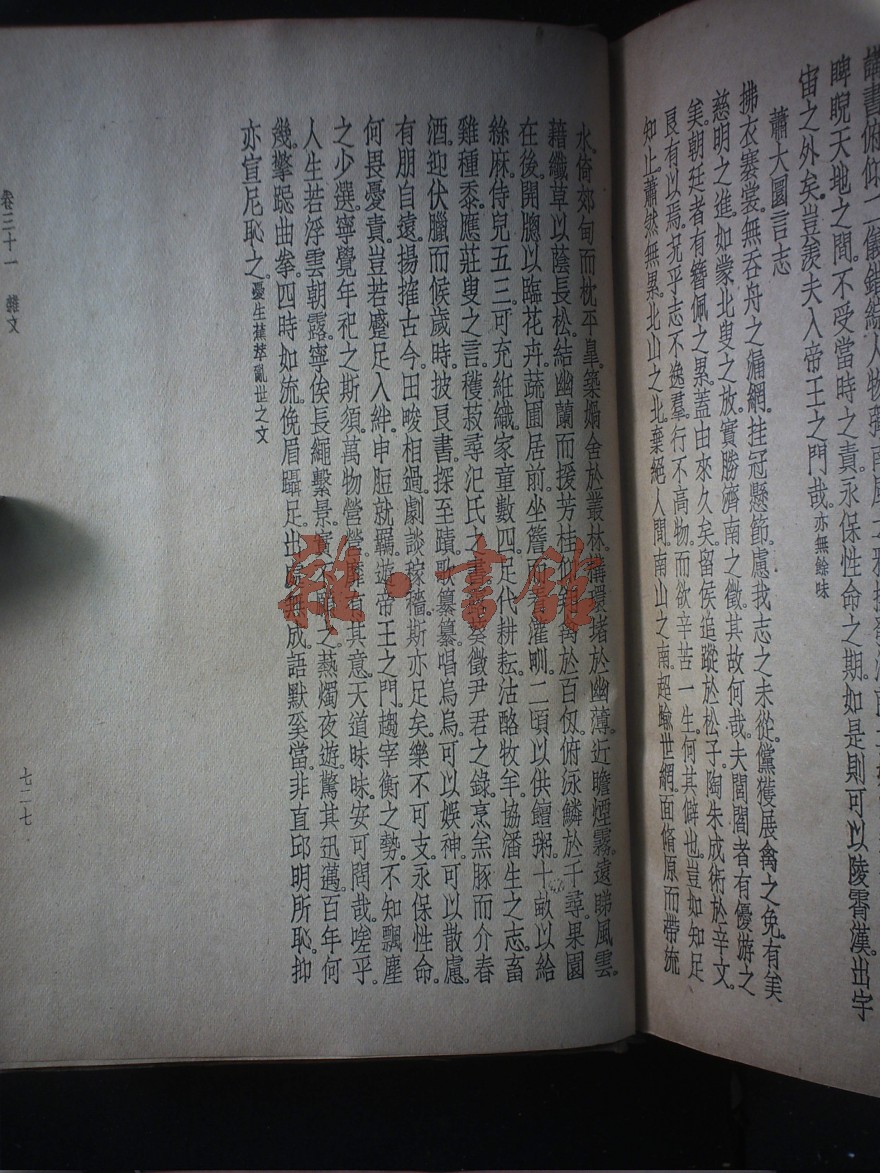 睥睨天地之間。不受當時之責。永保性命之期。如是則可以陵霄漢。出宇
宙之外矣。豈羨夫入帝王之門哉。亦無餘味
蕭大圜言志
拂衣褰裳。無吞舟之漏網。挂冠懸節。慮我志之未從。儻獲展禽之免。有美
慈明之進。如蒙北叟之放。實勝濟南之徵。其故何哉。夫閭閻者有優游之
美。朝廷者有簪佩之累。蓋由來久矣。留侯追蹤於松子。陶朱成術於辛文。
良有以焉。況乎志不逸羣。行不高物。而欲辛苦一生。何其僻也。豈如知足
知止。蕭然無累。北山之北。棄絕人間。南山之南。超踰世網。面脩原而帶流
水。倚郊甸而枕平皐。築蝸舍於叢林。構環堵於幽薄。近瞻煙霧。遠睇風雲。
藉纖草以蔭長松。結幽蘭而援芳桂。仰翔禽於百仭。俯泳鱗於千尋。果園
在後。開牕以臨花卉。蔬圃居前。坐簷而看灌甽。二頃以供饘粥。十畝以給
絲麻。侍兒五三。可充絍織。家童數四。足代耕耘。沽酪牧羊。協潘生之志。畜
雞種黍。應莊叟之言。穫菽尋汜氏之書。葵徵尹君之錄。烹羔豚而介春
酒。迎伏臘而候歲時。披良書。探至賾。歌纂纂。唱烏烏。可以娛神。可以散慮。
有朋自遠。揚搉古今。田畯相過。劇談稼穡。斯亦足矣。樂不可支。永保性命。
何畏憂責。豈若蹙足入絆。申脰就羈。遊帝王之門。趨宰衡之勢。不知飄塵
之少選。寧覺年祀之斯須。萬物營營。有其意。天道昧昧。安可問哉。嗟乎。
人生若浮雲朝露。寧俟長繩繫景。實之。執燭夜遊。驚其迅邁。百年何
幾。擎跽曲拳。四時如流。俛眉躡足。出處無成。語默奚當。非直邱明所恥。抑
亦宣尼恥之。憂生蕉萃亂世之文
卷三十一 雜文
七二七
雜·書館